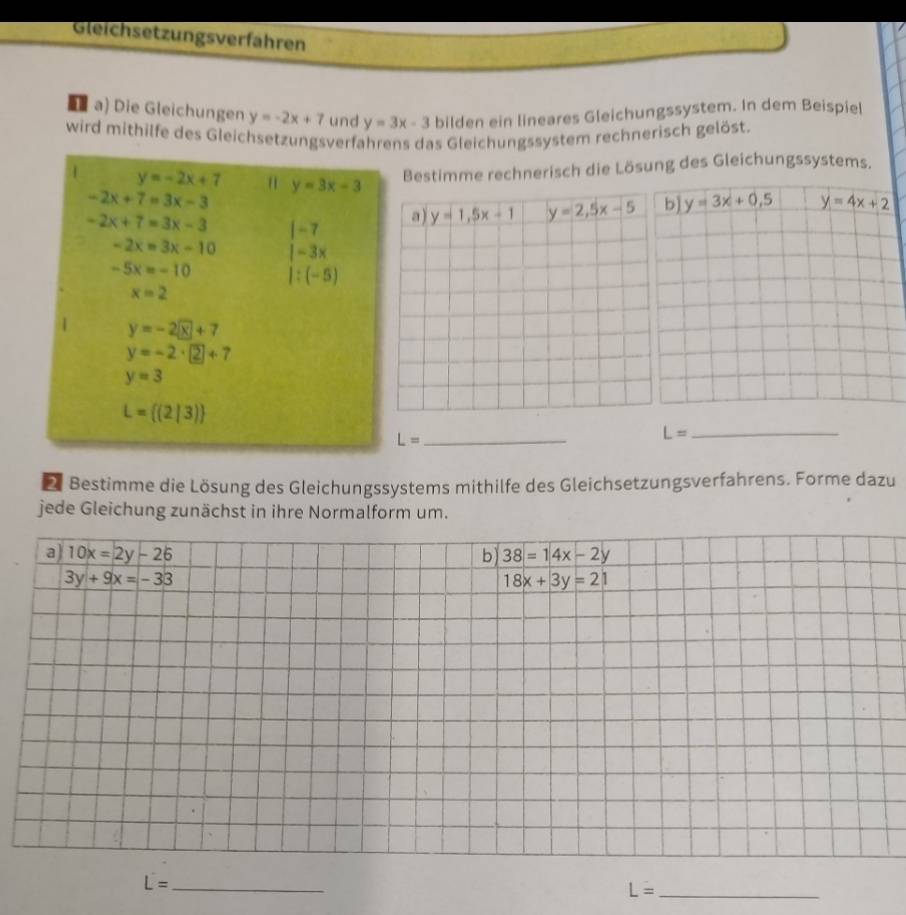 Gleichsetzungsverfahren
1 a) Die Gleichungen y = -2x + 7 und y = 3x - 3 bilden ein lineares Gleichungssystem. In dem Beispiel
wird mithilfe des Gleichsetzungsverfahrens das Gleichungssystem rechnerisch gelöst.
I y = -2x + 7 II y = 3x - 3
-2x + 7 = 3x - 3
-2x + 7 = 3x - 3 | -7
-2x = 3x - 10 | -3x
-5x = -10 | : (-5)
x = 2
I y = -2x + 7
y = -2 · 2 + 7
y = 3
L = {(2|3)}
Bestimme rechnerisch die Lösung des Gleichungssystems.
a) y = 1,5x - 1 y = 2,5x - 5
L = ____________
b) y = 3x + 0,5 y = 4x + 2
L = ____________
2 Bestimme die Lösung des Gleichungssystems mithilfe des Gleichsetzungsverfahrens. Forme dazu
jede Gleichung zunächst in ihre Normalform um.
a) 10x = 2y - 26
3y + 9x = -33
b) 38 = 14x - 2y
18x + 3y = 21
L = ____________
L = ____________